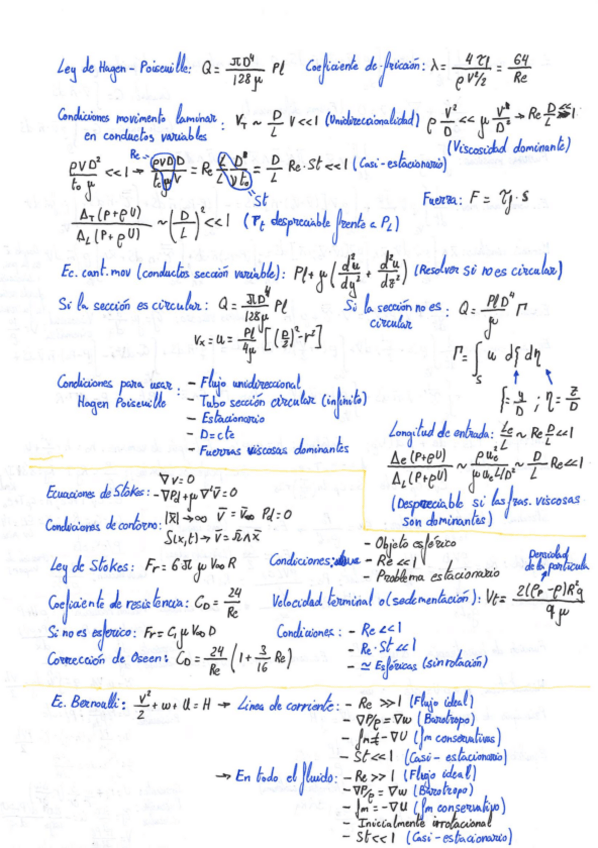 Ley de Hagen-Poiseuille: Q = πD⁴/128μ Pl   Coeficiente de fricción: λ = 4τf/(ρV²/2) = 64/Re
Condiciones movimiento laminar en conductos variables: V_T ~ D/L V << 1 (Unidireccionalidad) ρ V²/D << μ V/D² → Re D/L << 1
(Viscosidad dominante)
ρVD²/t₀μ << 1 → Re ρVDD/t₀μV = Re L/L D²/Vt₀ = D/L Re·St << 1 (Casi-estacionario)
St
Fuerza: F = τf·S
Δ_T(P+ρU)/Δ_L(P+ρU) ~ (D/L)² << 1 (P_t despreciable frente a P_L)
Ec. cant. mov (conductos sección variable): Pl + μ(d²u/dy² + d²u/dz²) (Resolver si no es circular)
Si la sección es circular: Q = πD⁴/128μ Pl   Si la sección no es circular: Q = PlD⁴/μ Γ
Vx = u = Pl/4μ [(D/2)² - r²]
Γ = ∫s u dξ dη
ξ = y/D ; η = z/D
Condiciones para usar Hagen Poiseuille
- Flujo unidireccional
- Tubo sección circular (infinito)
- Estacionario
- D = cte
- Fuerzas viscosas dominantes
Longitud de entrada: Le/L ~ Re D/L << 1
Δe(P+ρU)/Δ_L(P+ρU) ~ ρuc²/μucL/D² ~ D/L Re << 1
(Despreciable si las fzas. viscosas son dominantes)
Ecuaciones de Stokes: - ∇v = 0
- ∇Pd + μ∇²v̄ = 0
Condiciones de contorno: |x̄| → ∞ v̄ = v̄∞ Pd = 0
S(x,t) → v̄ = Ω̄∧x̄
Ley de Stokes: Fr = 6πμV∞R   Condiciones:
- Objeto esférico
- Re << 1
- Problema estacionario
Coeficiente de resistencia: C_D = 24/Re   Velocidad terminal o (sedementación): Vt = 2(ρp - ρ)R²g/9μ
Densidad de la partícula
Si no es esferico: Fr = C₁μV∞D   Condiciones: - Re << 1
- Re·St << 1
- ≃ Esféricas (sin rotación)
Corrección de Oseen: C_D = 24/Re (1 + 3/16 Re)
Ec. Bernoulli: v²/2 + w + U = H → Linea de corriente: - Re >> 1 (Flujo ideal)
- ∇P/ρ = ∇w (Barotropo)
- fm = -∇U (fm conservativas)
- St << 1 (Casi-estacionario)
→ En todo el fluido: - Re >> 1 (Flujo ideal)
- ∇P/ρ = ∇w (Barotropo)
- fm = -∇U (fm conservativo)
- Inicialmente irrotacional
- St << 1 (Casi-estacionario)